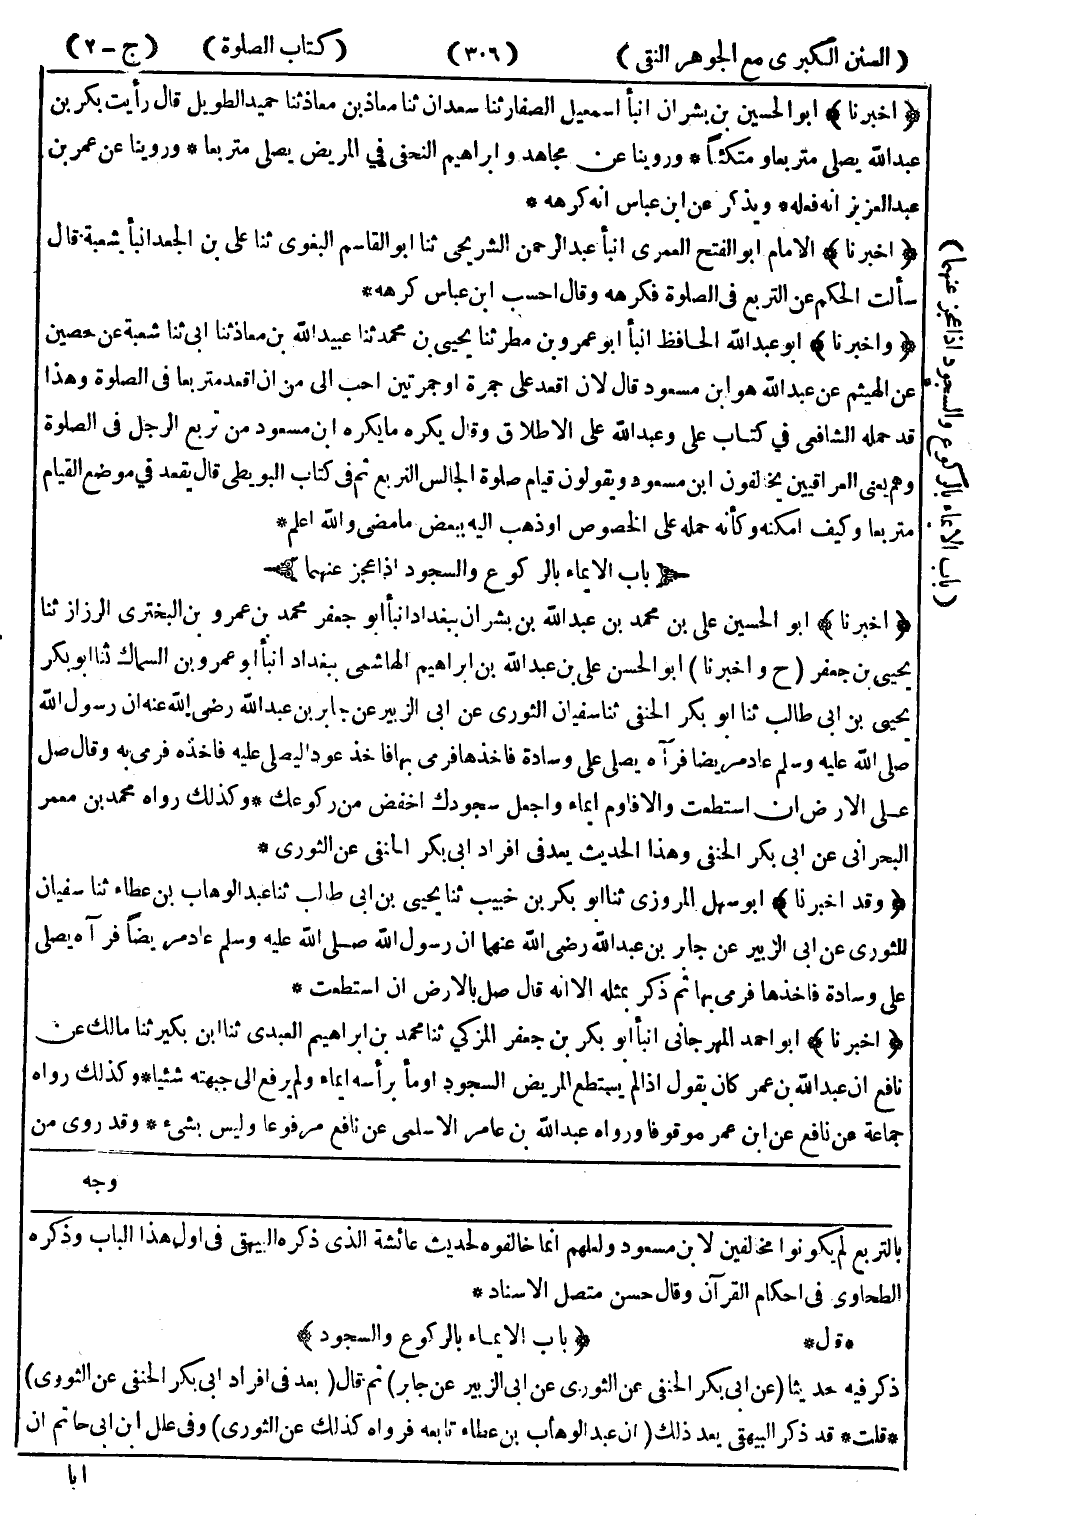 (السنن الكبرى مع الجوهر النقى) (٣٠٦) (كتاب الصلوة) (ج - ٢)
﴿اخبرنا﴾ ابوالحسين بن بشران انبأ اسمعيل الصفار ثنا سعدان ثنا معاذ بن معاذ ثنا حميد الطويل قال رأيت بكر بن
عبدالله يصلى متربعا و متكئاً * وروينا عن مجاهد و ابراهيم النخعى في المريض يصلى متربعا * وروينا عن عمر بن
عبدالعزيز انه فعله * ويذكر عن ابن عباس انه كرهه *
﴿اخبرنا﴾ الامام ابوالفتح العمرى انبأ عبدالرحمن الشريحى ثنا ابوالقاسم البغوى ثنا على بن الجعد انبأ شعبة قال
سألت الحكم عن التربع فى الصلوة فكرهه وقال احسب ابن عباس كرهه *
﴿واخبرنا﴾ ابو عبدالله الحافظ انبأ ابو عمرو بن مطر ثنا يحيى بن محمد ثنا عبيدالله بن معاذ ثنا ابى ثنا شعبة عن حصين
عن الهيثم عن عبدالله هو ابن مسعود قال لان اقعد على جمرة او جمرتين احب الى من ان اقعد متربعا فى الصلوة وهذا
قد حمله الشافعى في كتاب على وعبدالله على الاطلاق وقال يكره ما يكره ابن مسعود من تربع الرجل فى الصلوة
وهم يعنى العراقيين يخالفون ابن مسعود ويقولون قيام صلوة الجالس التربع ثم فى كتاب البويطى قال يقعد في موضع القيام
متربعا وكيف امكنه وكأنه حمله على الخصوص او ذهب اليه ببعض ما مضى والله اعلم *
باب الايماء بالركوع والسجود اذا عجز عنهما
﴿اخبرنا﴾ ابو الحسين على بن محمد بن عبدالله بن بشران ببغداد انبأ ابو جعفر محمد بن عمرو بن البخترى الرزاز ثنا
يحيى بن جعفر (ح و اخبرنا) ابوالحسن على بن عبدالله بن ابراهيم الهاشمى ببغداد انبأ ابو عمرو بن السماك ثنا ابوبكر
يحيى بن ابى طالب ثنا ابو بكر الحنفى ثنا سفيان الثورى عن ابى الزبير عن جابر بن عبدالله رضى الله عنه ان رسول الله
صلى الله عليه وسلم عاد مريضا فرآه يصلى على وسادة فاخذها فرمى بها فاخذ عودا ليصلى عليه فاخذه فرمى به وقال صل
على الارض ان استطعت والا فاوم ايماء واجعل سجودك اخفض من ركوعك * وكذلك رواه محمد بن معمر
البحرانى عن ابى بكر الحنفى وهذا الحديث يعد فى افراد ابى بكر الحنفى عن الثورى *
﴿وقد اخبرنا﴾ ابو سهل المروزى ثنا ابو بكر بن خبيب ثنا يحيى بن ابى طالب ثنا عبدالوهاب بن عطاء ثنا سفيان
الثورى عن ابى الزبير عن جابر بن عبدالله رضى الله عنهما ان رسول الله صلى الله عليه وسلم عاد مريضاً فرآه يصلى
على وسادة فاخذها فرمى بها ثم ذكر بمثله الا انه قال صل بالارض ان استطعت *
﴿اخبرنا﴾ ابو احمد المهرجانى انبأ ابو بكر بن جعفر المزكي ثنا محمد بن ابراهيم العبدى ثنا ابن بكير ثنا مالك عن
نافع ان عبدالله بن عمر كان يقول اذا لم يستطع المريض السجود اومأ برأسه ايماء ولم يرفع الى جبهته شيئا * وكذلك رواه
جماعة عن نافع عن ابن عمر موقوفا ورواه عبدالله بن عامر الاسلمى عن نافع مرفوعا وليس بشىء * وقد روى من
وجه
بالتربع لم يكونوا مخالفين لابن مسعود ولعلهم انما خالفوه لحديث عائشة الذى ذكره البيهقى فى اول هذا الباب وذكره
الطحاوى فى احكام القرآن وقال حسن متصل الاسناد *
*قال* ﴿باب الايماء بالركوع والسجود﴾
ذكر فيه حديثا (عن ابى بكر الحنفى عن الثورى عن ابى الزبير عن جابر) ثم قال (يعد فى افراد ابى بكر الحنفى عن الثورى)
*قلت* قد ذكر البيهقى بعد ذلك (ان عبدالوهاب بن عطاء تابعه فرواه كذلك عن الثورى) وفى علل ابن ابى حاتم ان
ابا
(باب الايماء بالركوع والسجود اذا عجز عنهما)